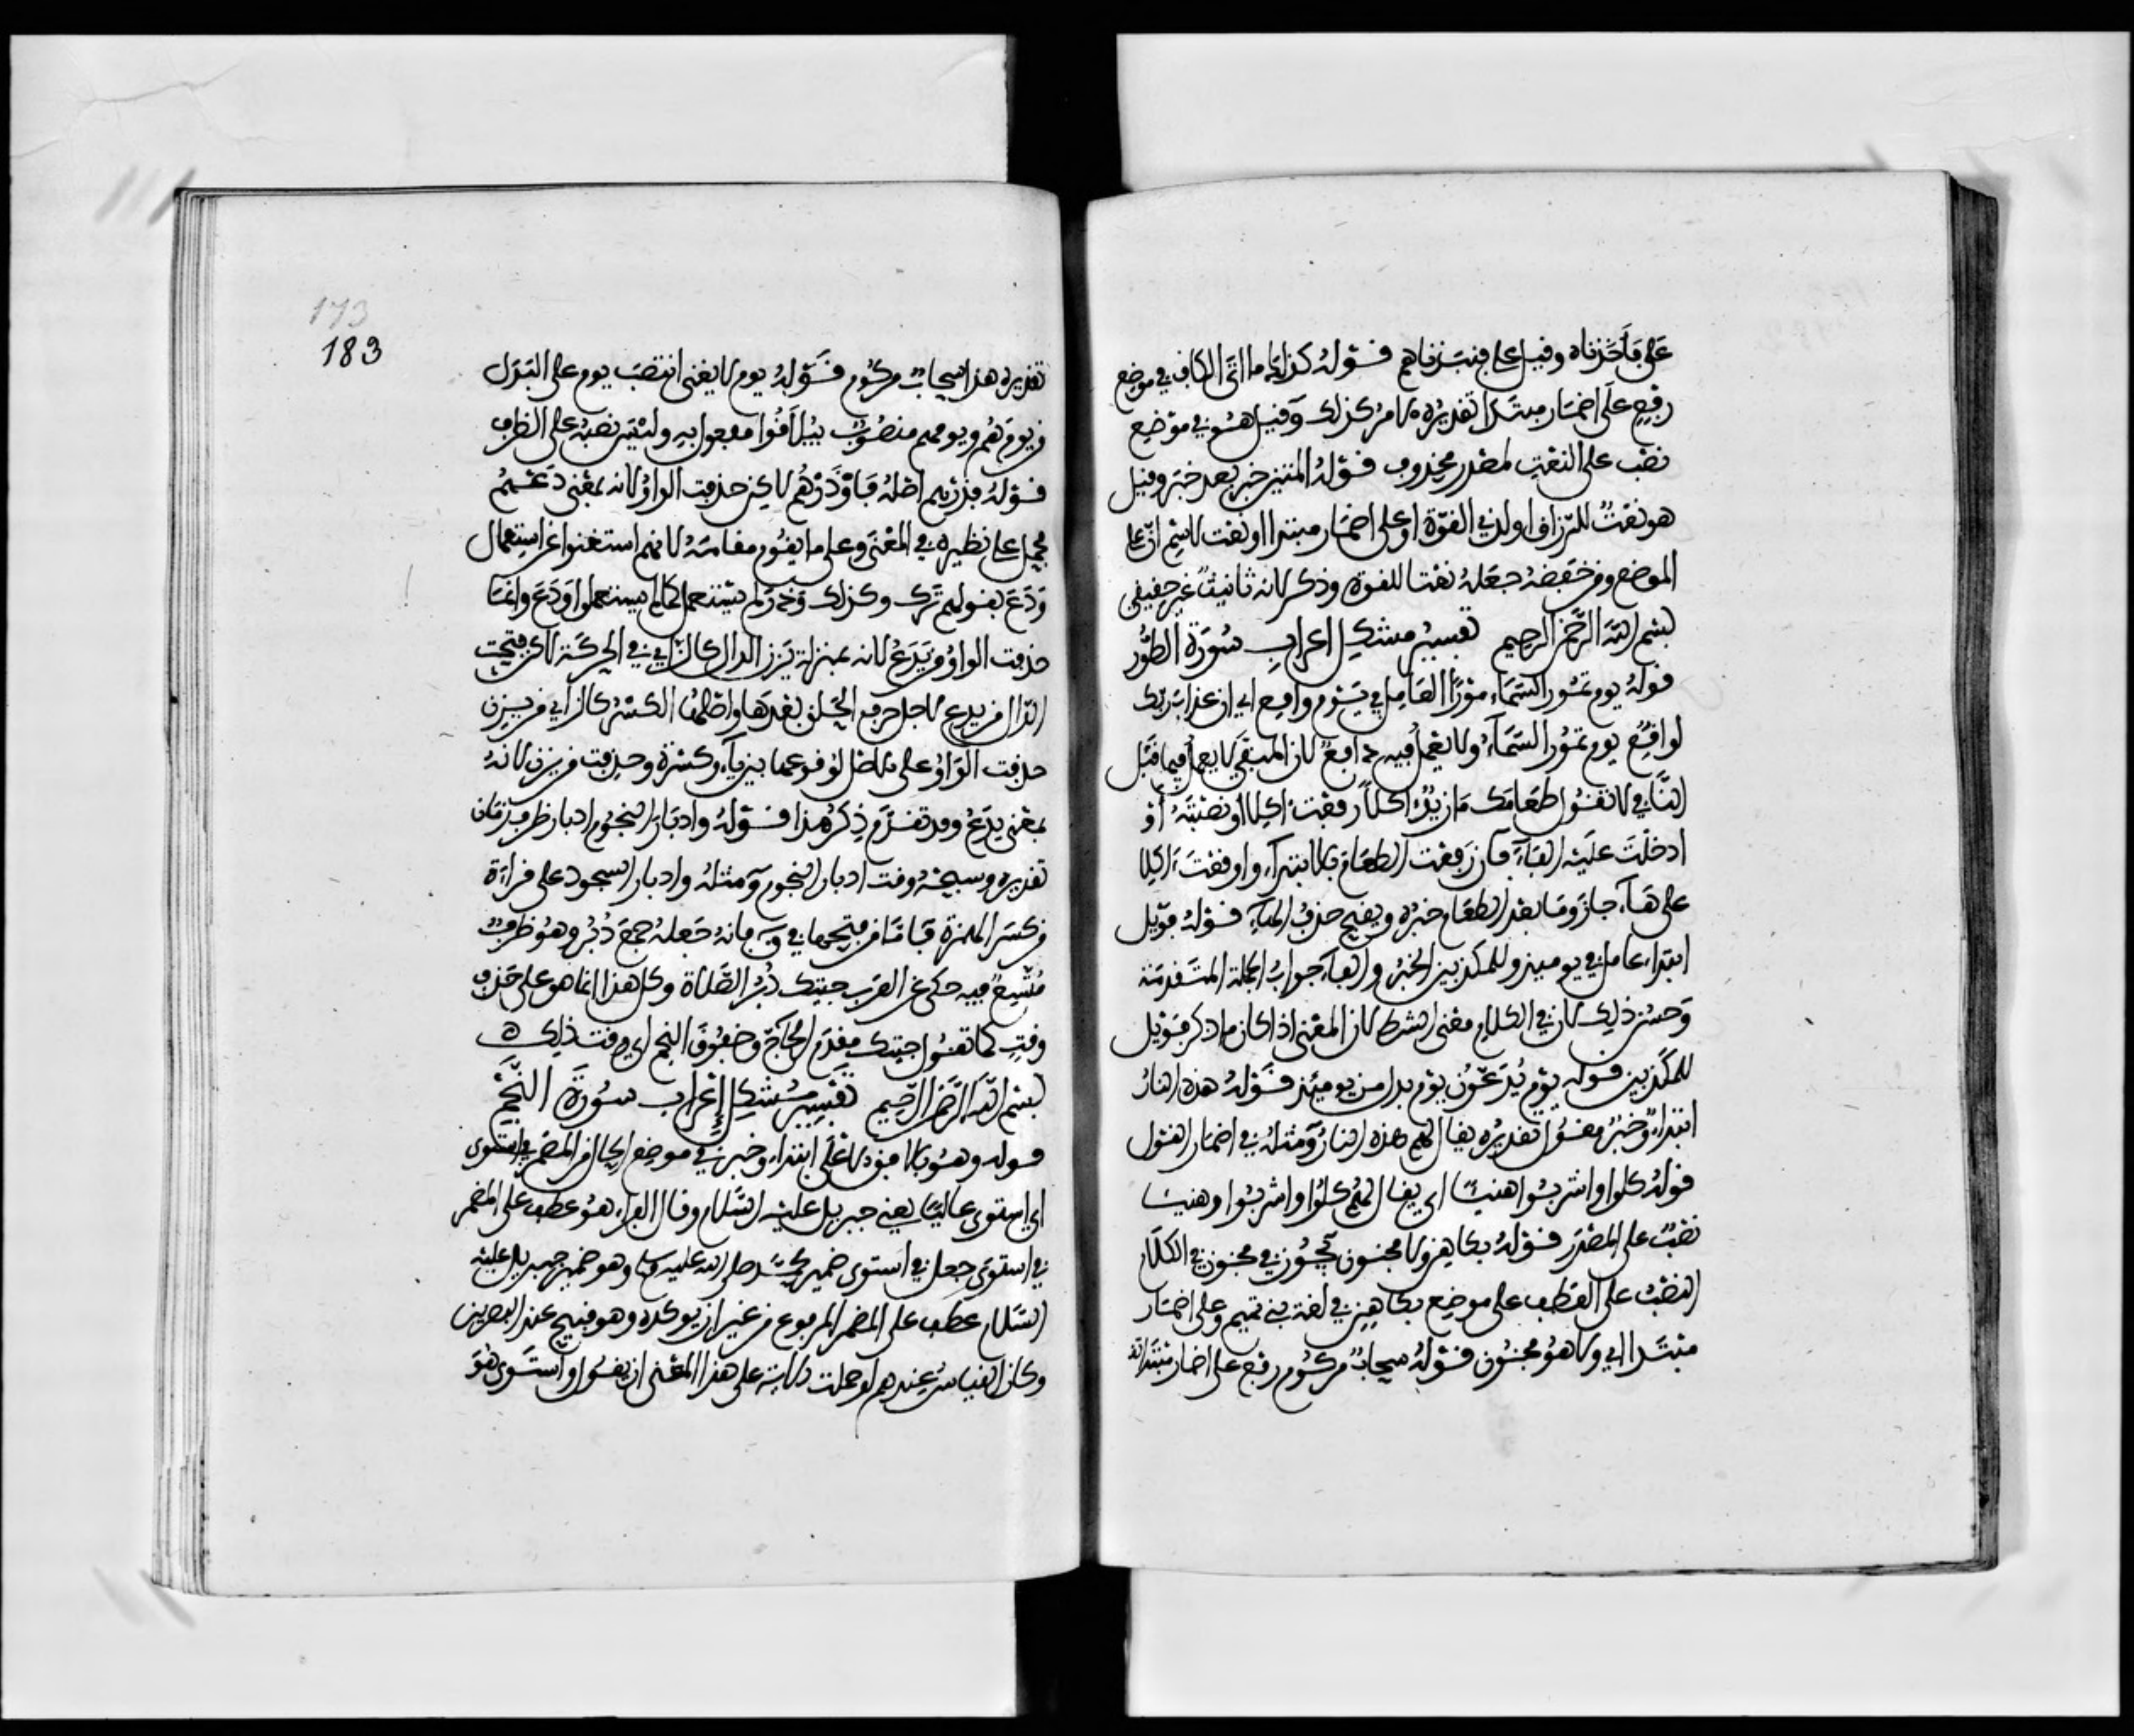 على فأخذناه وقيل على فنبذناهم قوله كذلك ما اتى الكاف في موضع
رفع على اضمار مبتدا تقديره الامر كذلك وقيل هو في موضع
نصب على النعت لمصدر محذوف قوله المتين خبر بعد خبر وقيل
هو نعت للرزاق او لذي القوة او على اضمار مبتدا او نعت لاسم ان على
الموضع ومن خفضه جعله نعتا للقوة وذكر لانه تانيث غير حقيقي
بسم الله الرحمن الرحيم تفسير مشكل اعراب سورة الطور
قوله يوم تمور السماء مورا العامل في يوم واقع اي ان عذاب ربك
لواقع يوم تمور السماء ولا يعمل فيه دافع لان المنفي لا يعمل فيما قبل
النافي لا تقول طعامك ما زيد اكلا رفعت اكلا او نصبته او
ادخلت عليه الباء فان رفعت الطعام بالابتداء واوقعت اكلا
على هاء جاز وما بعد الطعام خبره ويقبح حذف الهاء قوله فويل
ابتداء عامل في يوميذ وللمكذبين الخبر والفاء جواب الجملة المتقدمة
وحسن ذلك لان في الكلام معنى الشرط لان المعنى اذا كان ما ذكر فويل
للمكذبين قوله يوم يدعون يوم بدل من يومئذ قوله هذه النار
ابتداء وخبر مفعول تقديره يقال لهم هذه النار ومثله في اضمار القول
قوله كلوا واشربوا هنيئا اي يقال لهم كلوا واشربوا وهنيئا
نصب على المصدر قوله بكاهن ولا مجنون يجوز في مجنون في الكلام
النصب على العطف على موضع بكاهن في لغة بني تميم وعلى اضمار
مبتدا اي ولا هو مجنون قوله سحاب مركوم رفع على اضمار مبتدا
173
183
تقديره هذا سحاب مركوم قوله يوم لا يغني انتصب يوم على البدل
من يومهم ويومهم منصوب بيلاقوا مفعول به وليس نصبه على الظرف
قوله فذرهم اصله فاوذرهم لاكن حذفت الواو لانه بمعنى دعهم
فحمل على نظيره في المعنى وعلى ما يقوم مقامه لانهم استغنوا عن استعمال
ودع بقولهم ترك وكذلك وذر لم يستعمل كما لم يستعملوا ودع وانما
حذفت الواو من يدع لانه بمنزلة يزن الدال كالزاي في الحركة لاكن فتحت
الدال من يدع لاجل حرف الحلق بعدها واصلها الكسر كالزاي من يزن
حذفت الواو على الاصل لوقوعها بين ياء وكسرة وحذفت من يذر لانه
بمعنى يدع وقد تقدم ذكر هذا قوله وادبار النجوم ادبار ظرف زمان
تقديره وسبحه وقت ادبار النجوم ومثله وادبار السجود على قراءة
من كسر الهمزة فاما من فتحها في ق فانه جعله جمع دبر وهو ظرف
متسع فيه حكي عن العرب جيتك دبر الصلاة وكل هذا انما هو على حذف
وقت كما تقول جيتك مقدم الحاج وخفوق النجم اي وقت ذلك ه
بسم الله الرحمن الرحيم تفسير مشكل إعراب سورة النجم
قوله وهو بالافق الاعلى ابتداء وخبر في موضع الحال من المضمر في استوى
اي استوى عاليا يعني جبريل عليه السلام وقال الفراء هو عطف على المضمر
في استوى جعل في استوى ضمير محمد صلى الله عليه وسلم وهو ضمير جبريل عليه
السلام عطف على المضمر المرفوع من غير ان يوكده وهو قبيح عند البصريين
وكان القياس عندهم لو حملت الاية على هذا المعنى ان يقول او استوى هو